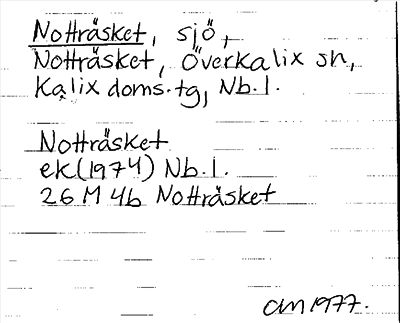 Notträsket, sjö,
Notträsket, Överkalix sn,
Kalix doms.tg, Nb.l.
Notträsket
ek(1974) Nb.l.
26 M 4b Notträsket
1977.